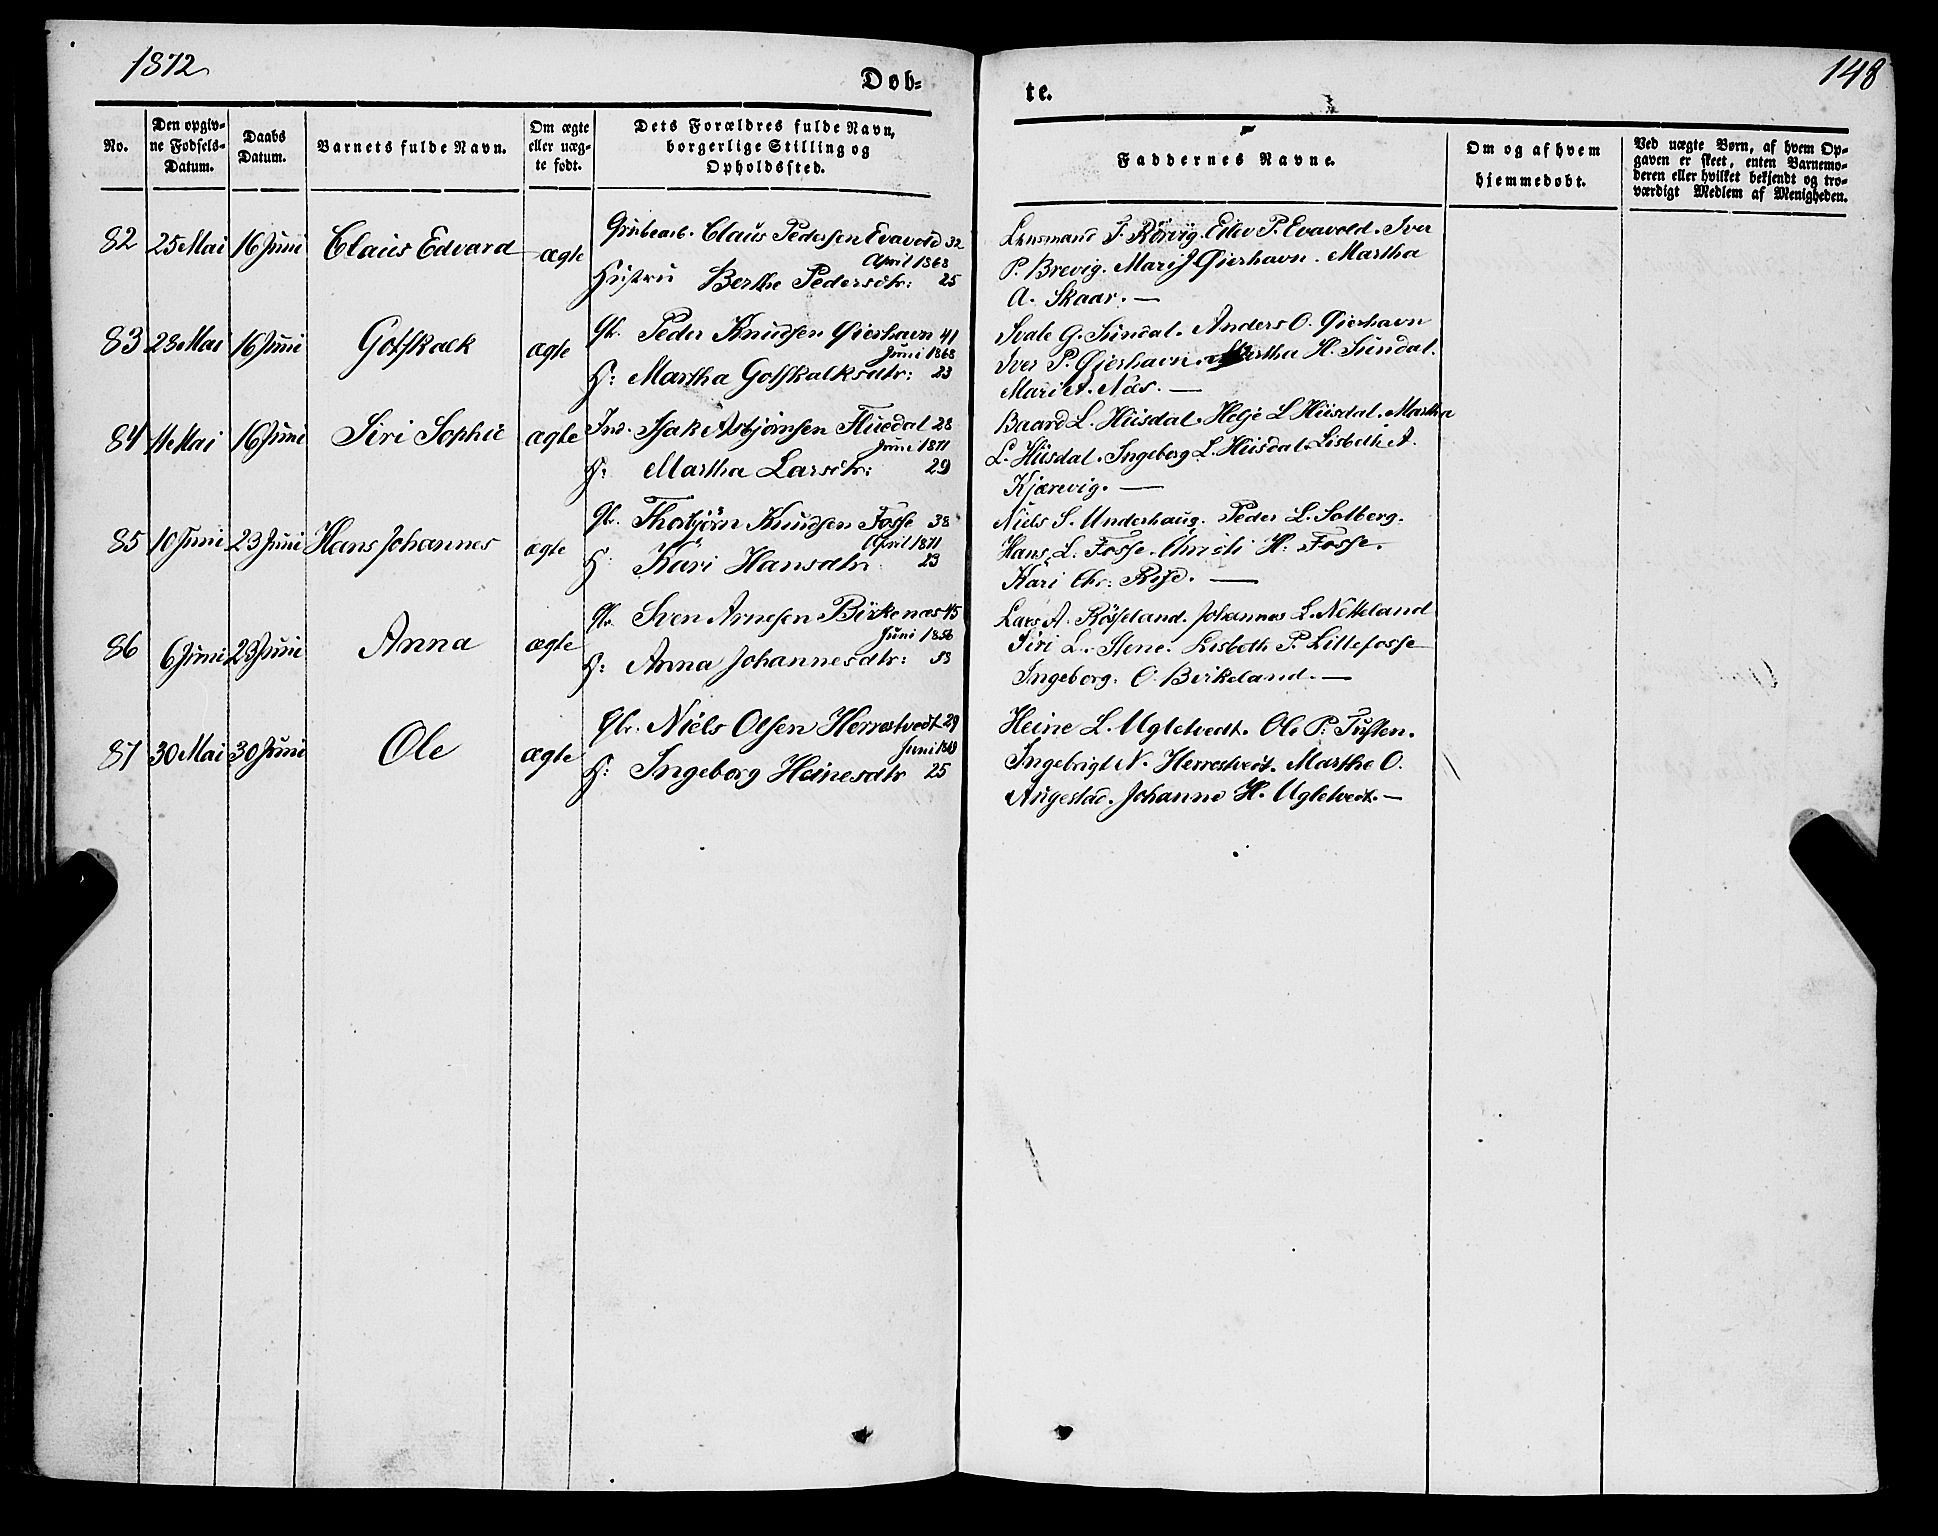 1872
148
Døb-
te.
No.
Den opgiv-
ne Fødsels-
Datum.
Daabs
Datum.
Barnets fulde Navn.
Om ægte
eller uæg-
te født.
Dets Forældres fulde Navn,
borgerlige Stilling og
Opholdssted.
Faddernes Navne.
Om og af hvem
hjemmedøbt.
Ved uægte Børn, af hvem Op-
gaven er skeet, enten Barnemo-
deren eller hvilket bekjendt og tro-
værdigt Medlem af Menigheden.
82 25 Mai 16 Juni Claus Edvard ægte Grubearb. Claus Pedersen Evavold 32
April 1868
Hustru Berthe Pedersdtr: 25
Lensmand J. Rörvig. Eilev P. Evavold. Iver
P. Brevig. Mari J Øierhavn. Martha
A. Skaar. —
83 28 Mai 16 Juni Gotskalk ægte Gbr. Peder Knudsen Øierhavn 41
Juni 1868
H: Martha Gotskalksdtr: 23
Svale G. Sundal. Anders O. Øierhavn
Iver P. Øjerhavn. Martha H. Sundal.
Mari A. Næs. —
84 11 Mai 16 Juni Siri Sophie ægte Ind. Isak Asbjörnsen Husdal 28
Juni 1871
H: Martha Larsdtr: 29
Baard L. Husdal. Helje L Husdal. Martha
L. Husdal. Ingeborg L. Husdal. Lisbeth A.
Kjærevig. —
85 10 Juni 23 Juni Hans Johannes ægte Gbr. Thorbjörn Knudsen Fosse 38
April 1871
H: Kari Hansdtr 23
Niels S. Underhaug. Peder L. Solberg.
Hans L. Fosse. Christi H. Fosse.
Kari Chr: Risø. —
86 6 Juni 23 Juni Anna ægte Gbr. Sven Arnesen Birkenæs 45
Juni 1856
H: Anna Johannesdtr: 53
Lars A. Röiseland. Johannes L. Netteland
Siri L. Stene. Lisbeth P. Lillefosse
Ingeborg. O. Birkeland. —
87 30 Mai 30 Juni Ole ægte Gbr. Niels Olsen Herrestvedt 29
Juni 1869
H: Ingeborg Heinesdtr 25
Heine L. Ugletvedt. Ole P. Tusten.
Ingebrigt N. Herrestvedt. Marthe O.
Augestad. Johanne H. Ugletvedt. —